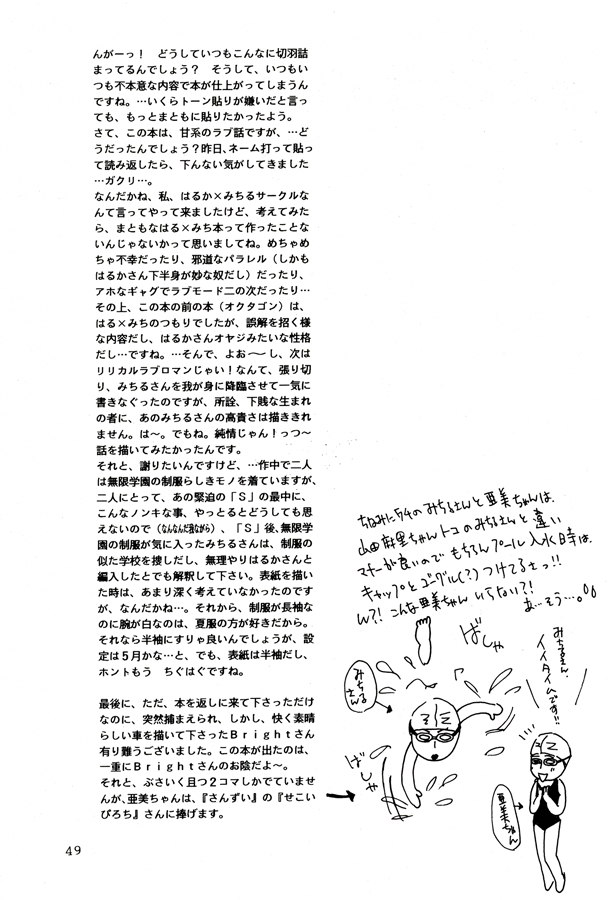 んがーっ！　どうしていつもこんなに切羽詰
まってるんでしょう？　そうして、いつもい
つも不本意な内容で本が仕上がってしまうん
ですね。…いくらトーン貼りが嫌いだと言っ
ても、もっとまともに貼りたかったよう。
さて、この本は、甘系のラブ話ですが、…ど
うだったんでしょう？昨日、ネーム打って貼っ
て読み返したら、下んない気がしてきました
…ガクリ…。
なんだかね、私、はるか×みちるサークルな
んて言ってやって来ましたけど、考えてみた
ら、まともなはる×みち本って作ったことな
いんじゃないかって思いましてね。めちゃめ
ちゃ不幸だったり、邪道なパラレル（しかも
はるかさん下半身が妙な奴だし）だったり、
アホなギャグでラブモード二の次だったり…
その上、この本の前の本（オクタゴン）は、
はる×みちのつもりでしたが、誤解を招く様
な内容だし、はるかさんオヤジみたいな性格
だし…ですね。…そんで、よお〜し、次は
リリカルラブロマンじゃい！なんて、張り切
り、みちるさんを我が身に降臨させて一気に
書きなぐったのですが、所詮、下賎な生まれ
の者に、あのみちるさんの高貴さは描ききれ
ません。は〜。でもね。純情じゃん！っつ〜
話を描いてみたかったんです。
それと、謝りたいんですけど、…作中で二人
は無限学園の制服らしきモノを着ていますが、
二人にとって、あの緊迫の「Ｓ」の最中に、
こんなノンキな事、やっとるとどうしても思
えないので（なんなんだ我ながら）、「Ｓ」後、無限学
園の制服が気に入ったみちるさんは、制服の
似た学校を捜しだし、無理やりはるかさんと
編入したとでも解釈して下さい。表紙を描い
た時は、あまり深く考えていなかったのです
が、なんだかね…。それから、制服が長袖な
のに腕が白なのは、夏服の方が好きだから。
それなら半袖にすりゃ良いんでしょうが、設
定は５月かな…と、でも、表紙は半袖だし、
ホントもう　ちぐはぐですね。
最後に、ただ、本を返しに来て下さっただけ
なのに、突然捕まえられ、しかし、快く素晴
らしい車を描いて下さったＢｒｉｇｈｔさん
有り難うございました。この本が出たのは、
一重にＢｒｉｇｈｔさんのお陰だよ〜。
それと、ぶさいく且つ２コマしかでていませ
んが、亜美ちゃんは、『さんずい』の『せこい
びろち』さんに捧げます。
ちなみにウチのみちるさんと亜美ちゃんは、
山田麻里ちゃんトコのみちるさんと違い
マナーが良いので もちろんプール入水時は、
キャップとゴーグル（？）つけてるさっ！！
ん?! こんな亜美ちゃん いらない?!
あ…そう…。
ばしゃ
みちるさん
ばしゃ
みちるさん、
イイタイムです!!
亜美ちゃん
49